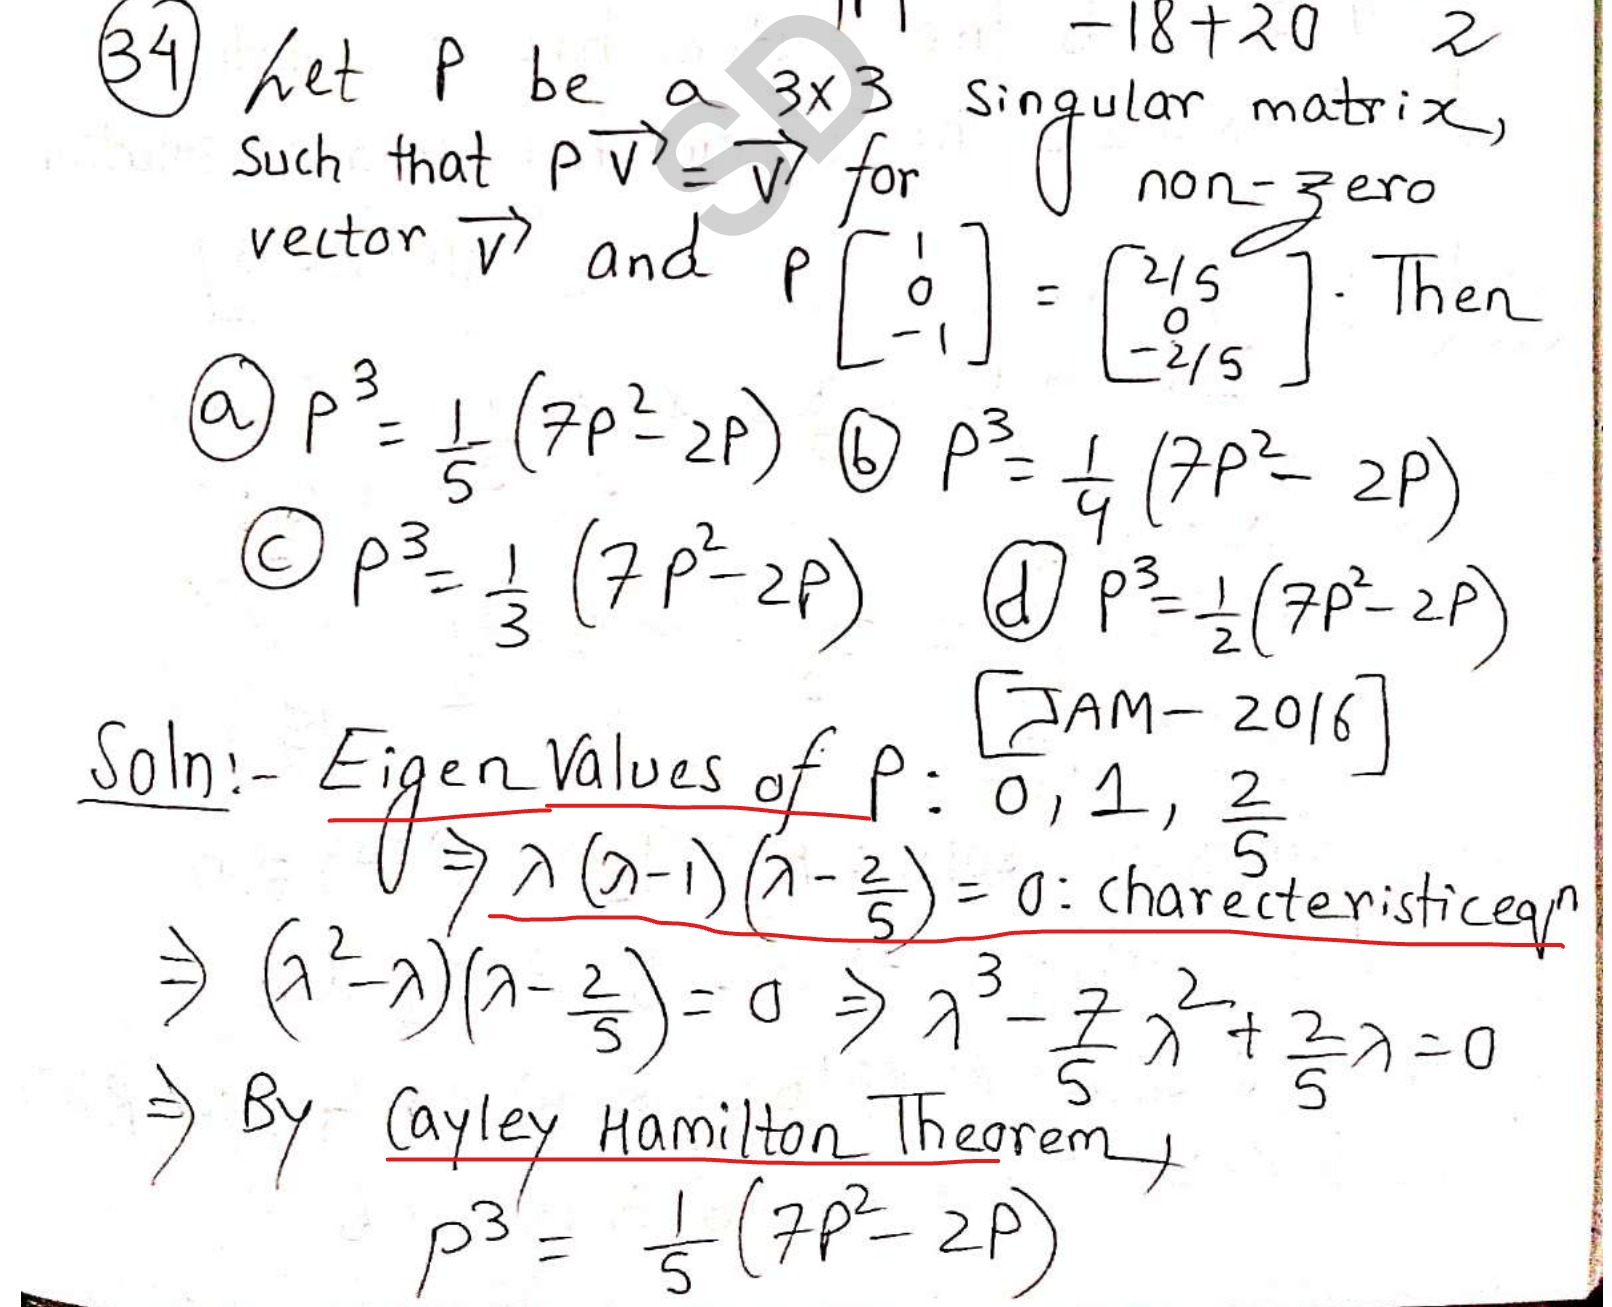 -18+20 2
34 Let P be a 3×3 singular matrix,
such that P v⃗ = v⃗ for non-zero
vector v⃗ and P [1 0 -1] = [2/5 0 -2/5]. Then
a P³ = 1/5 (7P² - 2P) b P³ = 1/4 (7P² - 2P)
c P³ = 1/3 (7P² - 2P) d P³ = 1/2 (7P² - 2P)
[JAM - 2016]
Soln:- Eigen Values of P: 0, 1, 2/5
⇒ λ(λ-1)(λ - 2/5) = 0: charecteristic eqⁿ
⇒ (λ² - λ)(λ - 2/5) = 0 ⇒ λ³ - 7/5 λ² + 2/5 λ = 0
⇒ By Cayley Hamilton Theorem,
P³ = 1/5 (7P² - 2P)
SD